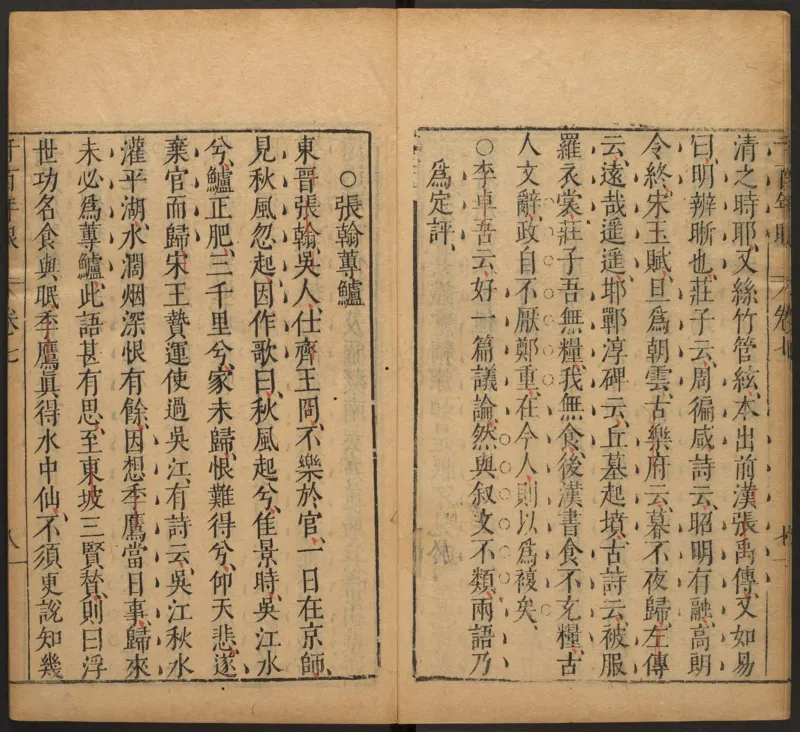 清之時耶、又絲竹管絃、本出前漢張禹傳、又如易
曰、明辨晣也、莊子云、周徧咸、詩云、昭明有融、高朗
令終、宋玉賦、旦爲朝雲、古樂府云、暮不夜歸、左傳
云、遠哉遥遥、邯鄲淳碑云、丘墓起墳、古詩云、被服
羅衣裳、莊子吾無糧、我無食、後漢書食不充糧、古
人文辭、政自不厭鄭重、在今人、則以爲複矣、
○李卓吾云、好一篇議論、然與叙文不類、兩語乃
爲定評、
○張翰蓴鱸
東晋張翰、吳人、仕齊王冏、不樂於官、一日在京師、
見秋風忽起、因作歌曰、秋風起兮、隹景時、吳江水
兮、鱸正肥、三千里兮、家未歸、恨難得兮、仰天悲、遂
棄官而歸、宋王贄運使過吳江、有詩云、吳江秋水
灌平湖、水濶烟深恨有餘、因想季鷹當日事、歸來
未必爲蓴鱸、此語甚有思、至東坡三賢替、則曰浮
世功名食與眠、季鷹眞得水中仙、不須更說知幾
卷七
八